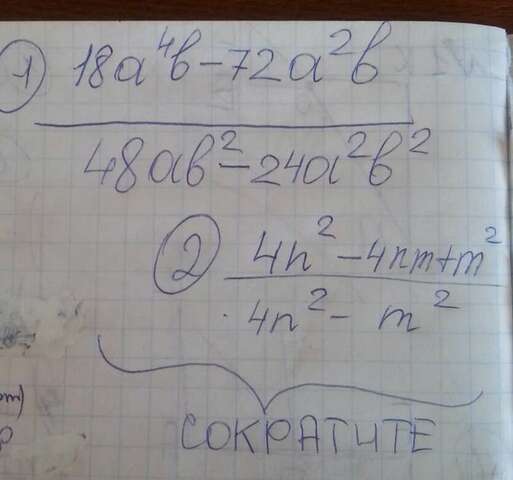 1 18a⁴b-72a²b
48ab²-24a²b²
2 4n²-4nm+m²
4n²-m²
СОКРАТИТЕ